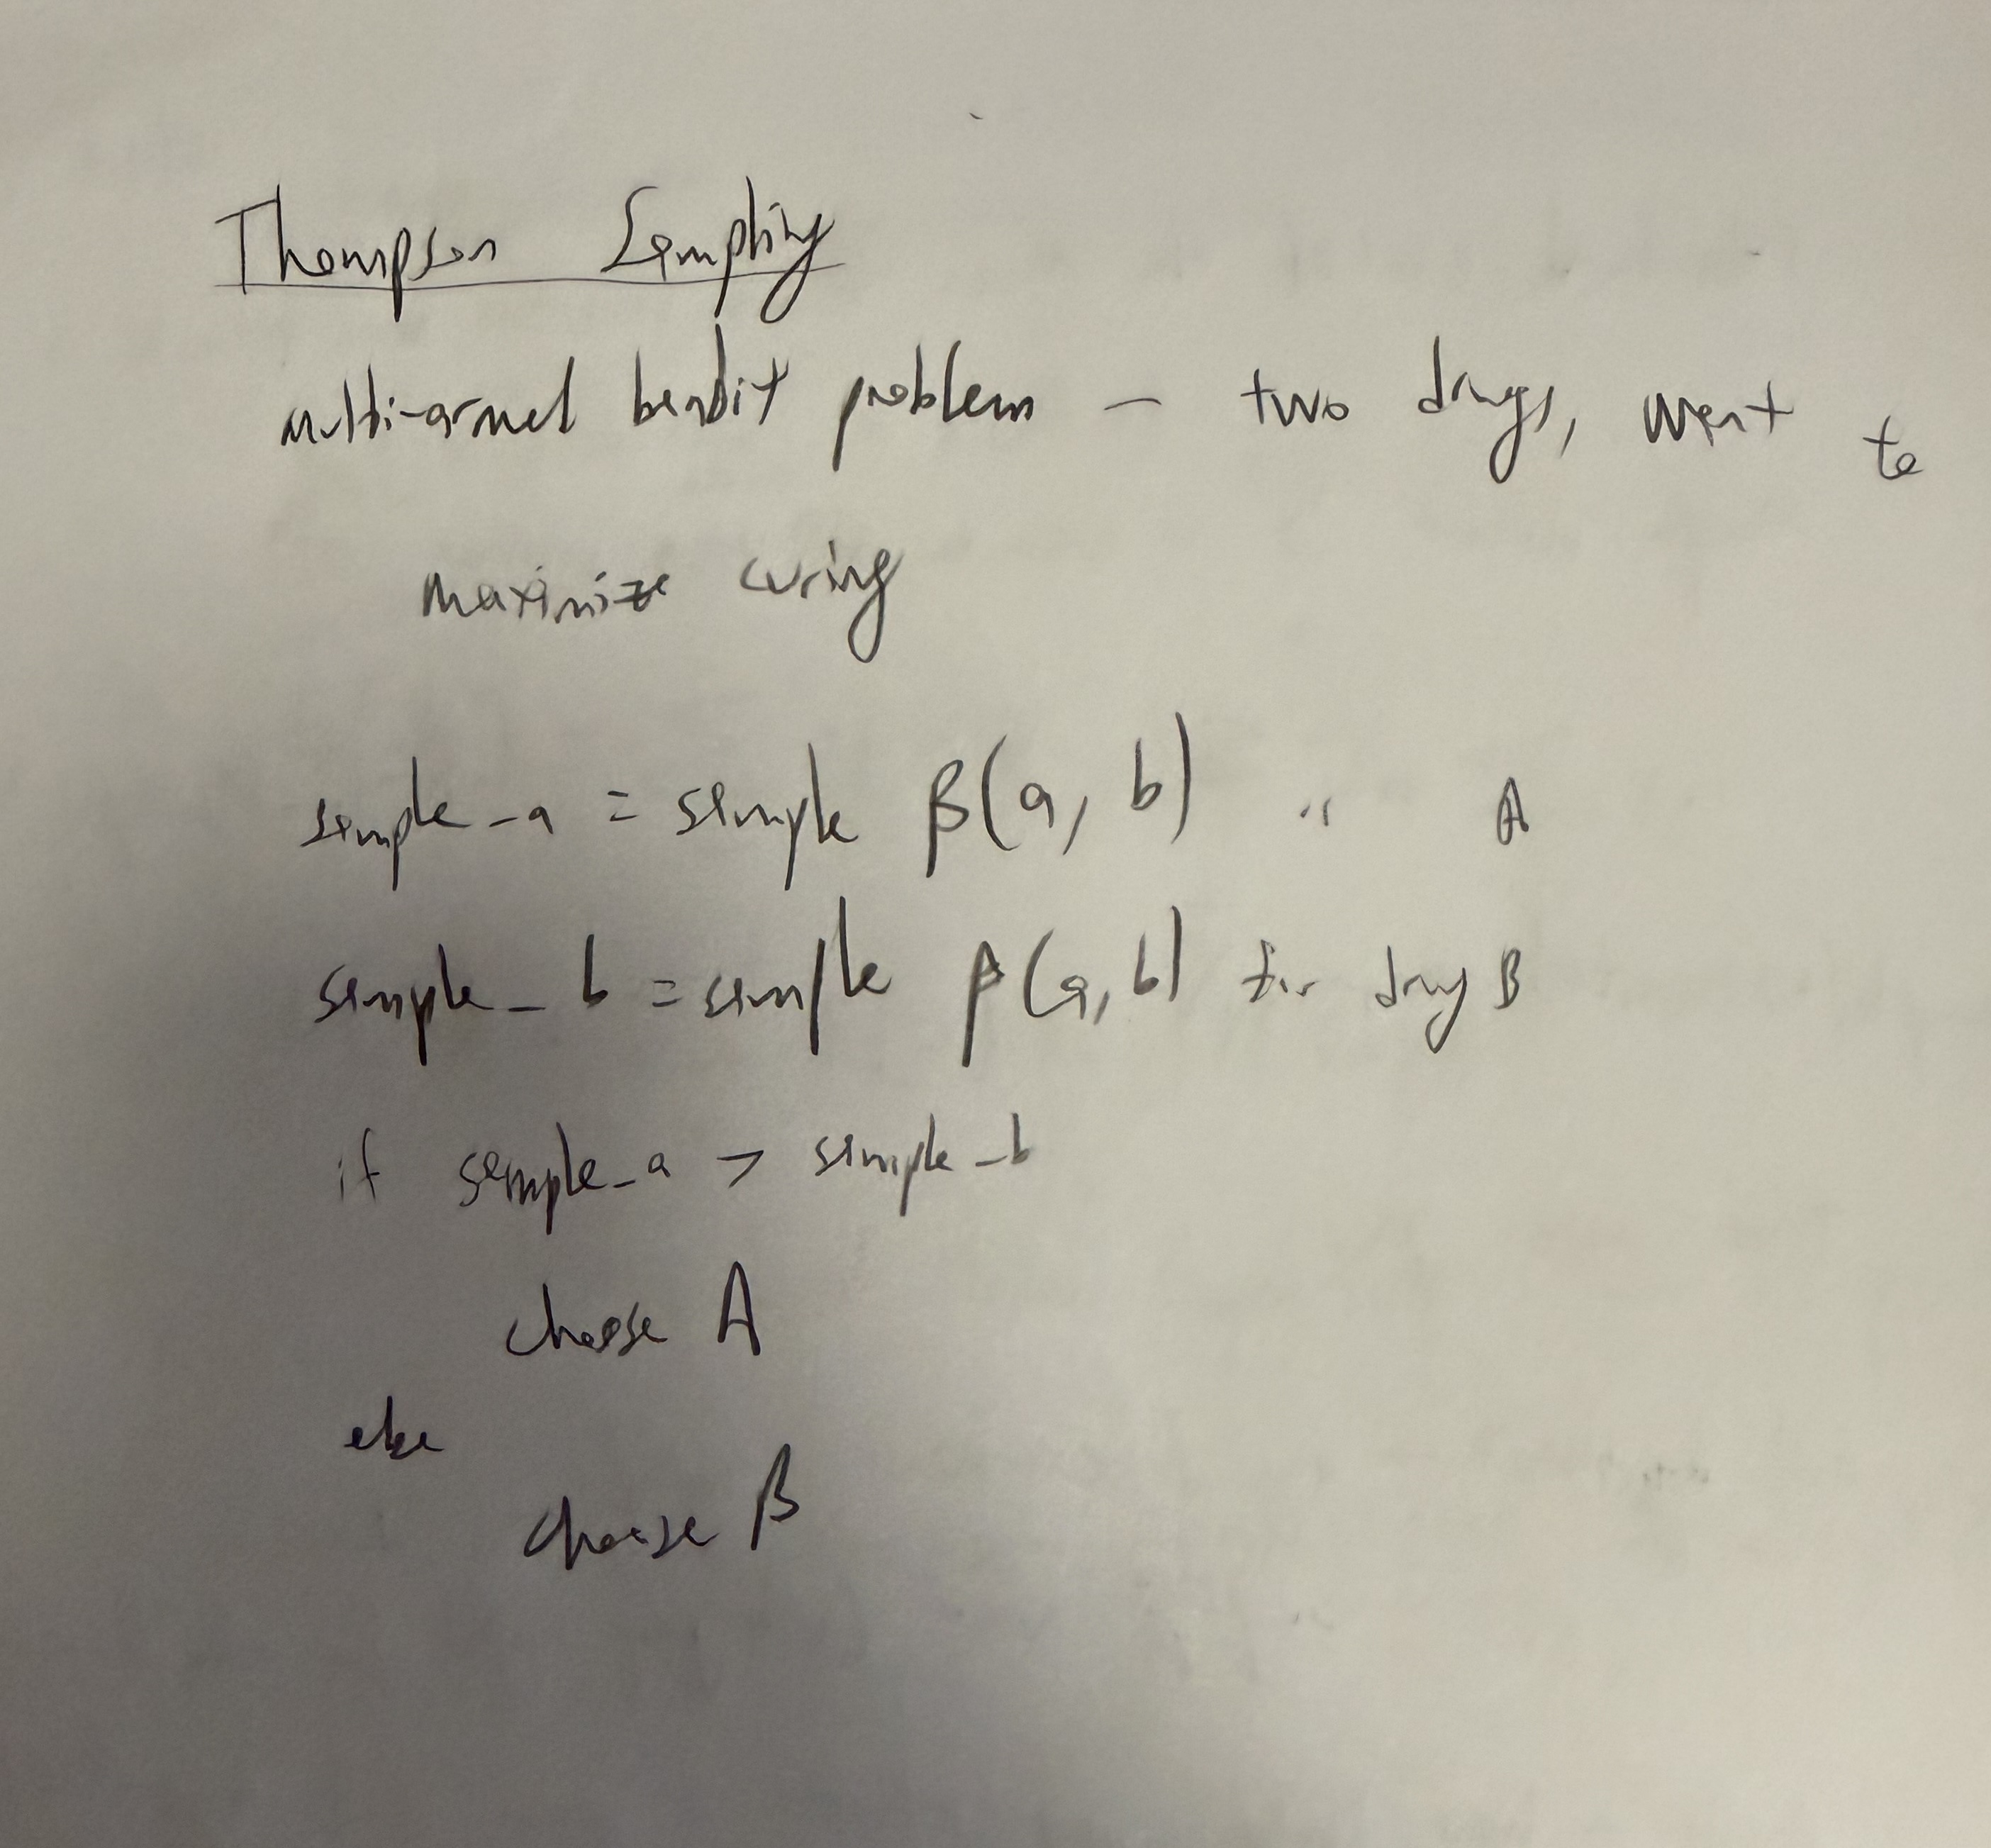 Thompson Sampling
multi-armed bandit problem - two drugs, want to
maximize curing
sample_a = sample β(a, b) " A
sample_b = sample β(a, b) for drug B
if sample_a > sample_b
choose A
else
choose B